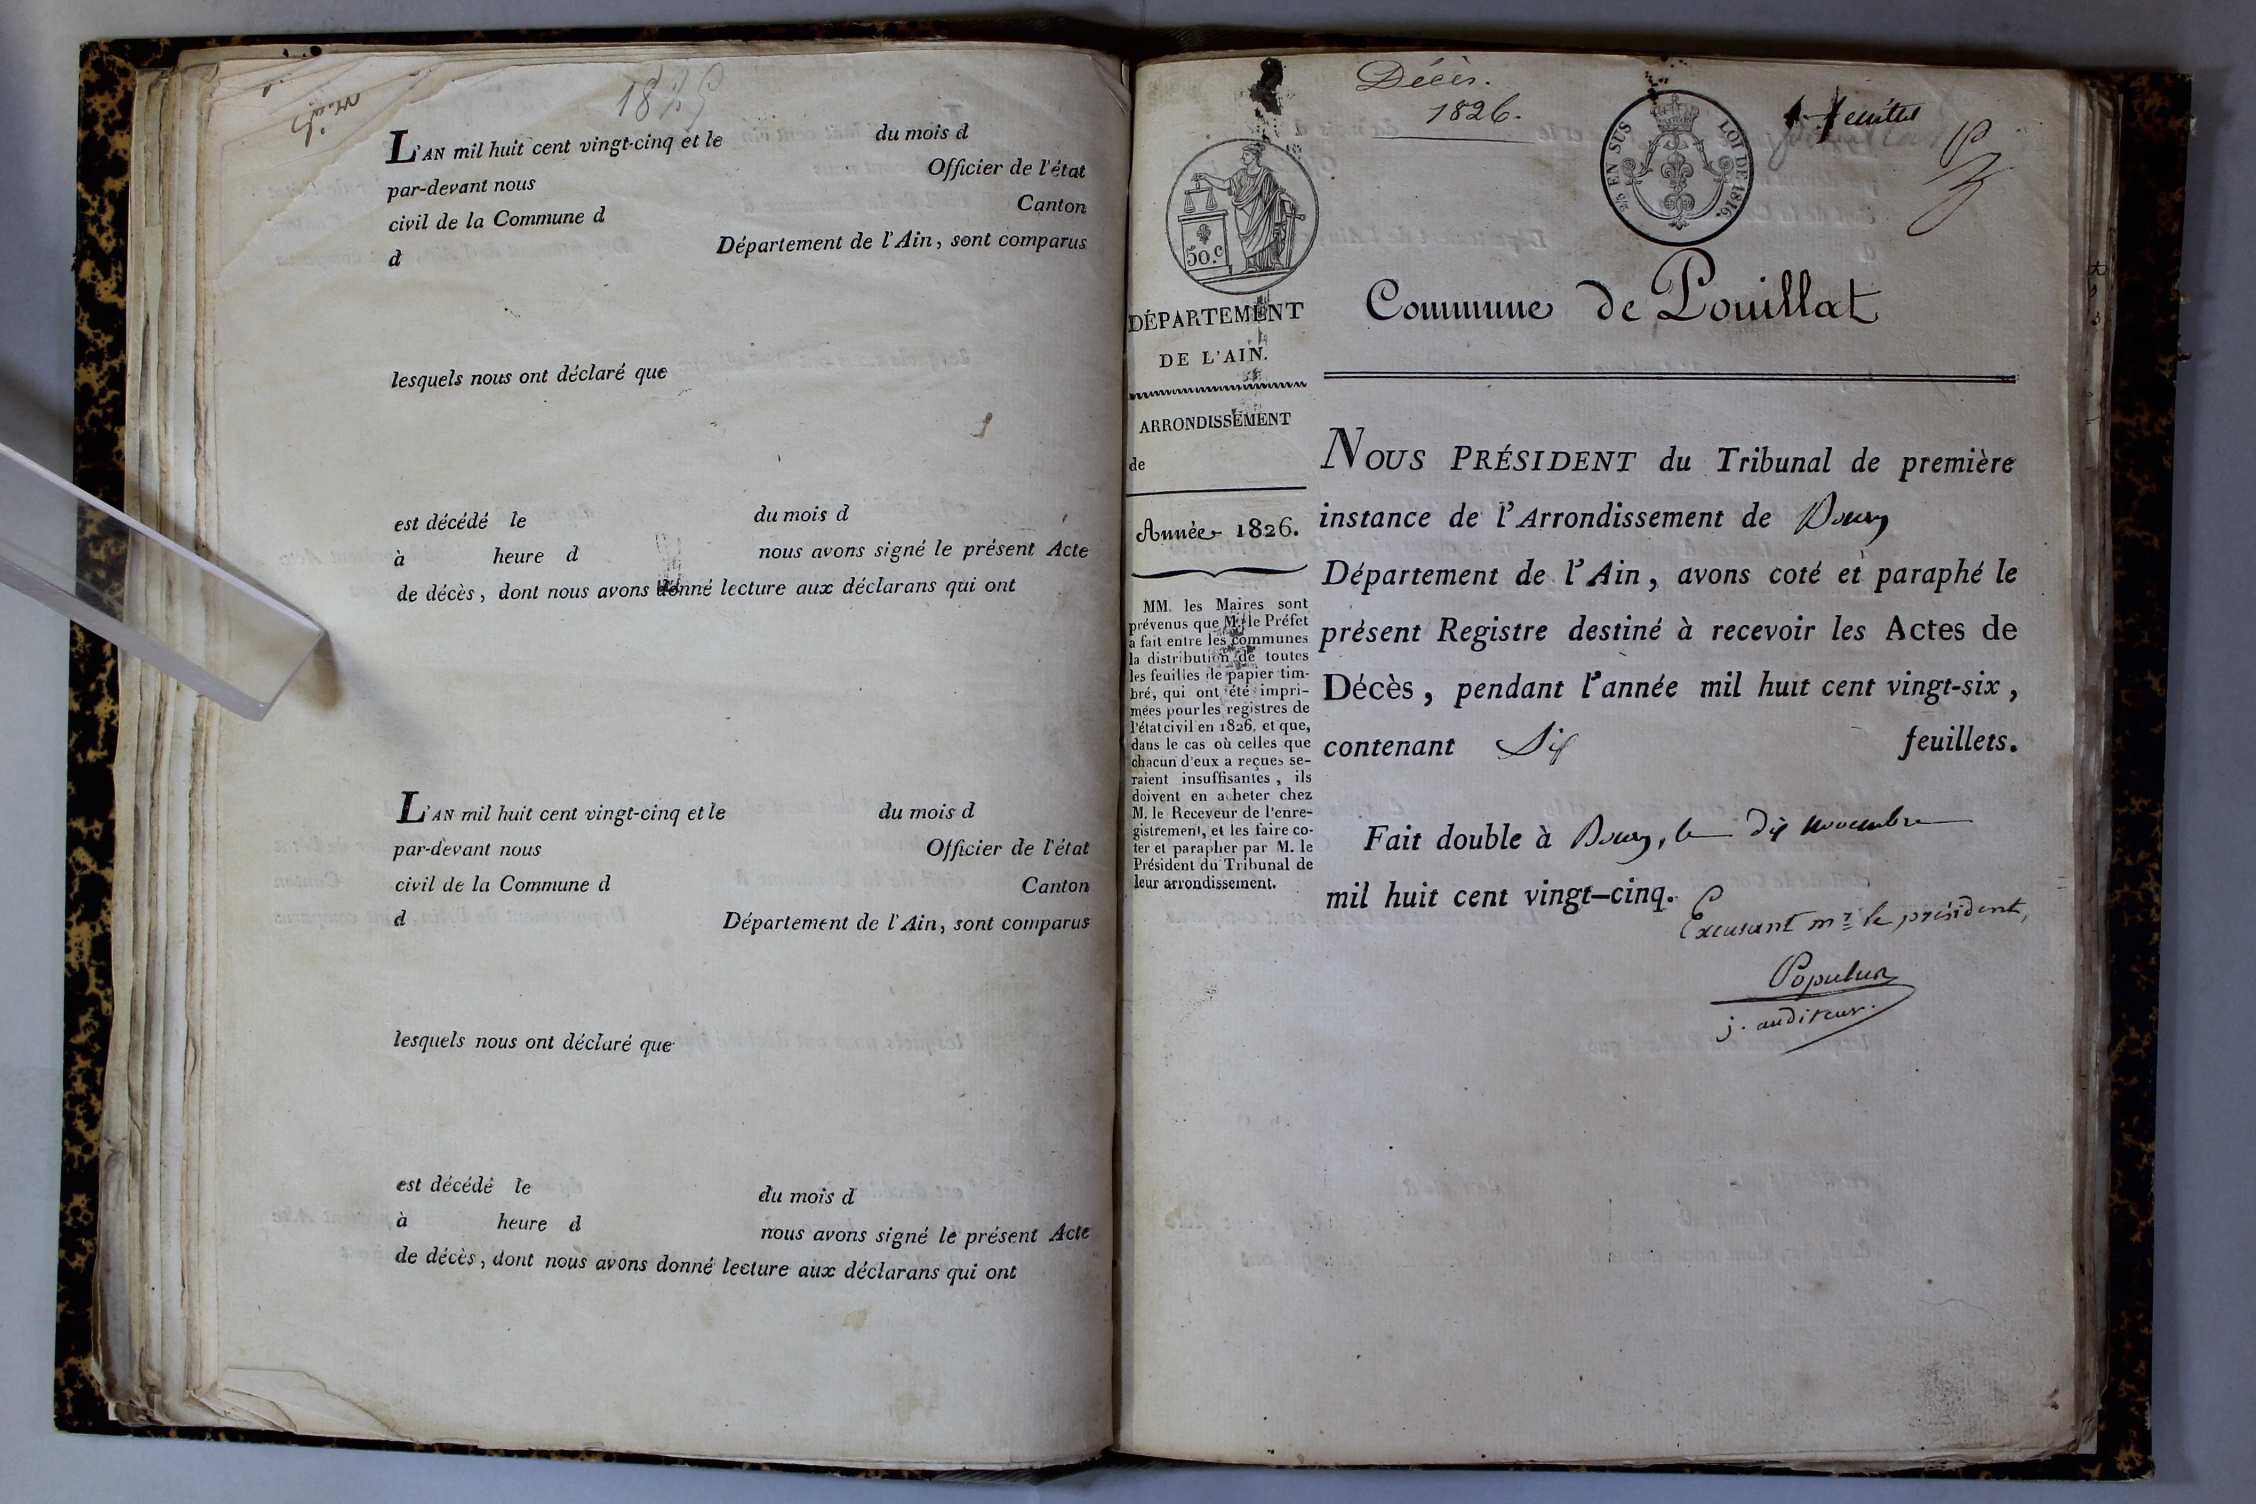 1825
L'AN mil huit cent vingt-cinq et le du mois d
par-devant nous Officier de l'état
civil de la Commune d Canton
d Département de l'Ain, sont comparus
lesquels nous ont déclaré que
est décédé le du mois d
à heure d nous avons signé le présent Acte
de décès, dont nous avons donné lecture aux déclarans qui ont
L'AN mil huit cent vingt-cinq et le du mois d
par-devant nous Officier de l'état
civil de la Commune d Canton
d Département de l'Ain, sont comparus
lesquels nous ont déclaré que
est décédé le du mois d
à heure d nous avons signé le présent Acte
de décès, dont nous avons donné lecture aux déclarans qui ont
Décès.
1826.
EN SUS LOI DE 1816.
feuillet
50.c
DÉPARTEMENT
DE L'AIN.
ARRONDISSEMENT
de
Année 1826.
MM. les Maires sont
prévenus que M. le Préfet
a fait entre les communes
la distribution de toutes
les feuilles de papier tim-
bré, qui ont été impri-
mées pour les registres de
l'état civil en 1826, et que,
dans le cas où celles que
chacun d'eux a reçues se-
raient insuffisantes, ils
doivent en acheter chez
M. le Receveur de l'enre-
gistrement, et les faire co-
ter et parapher par M. le
Président du Tribunal de
leur arrondissement.
Commune de Pouillat
NOUS PRÉSIDENT du Tribunal de première
instance de l'Arrondissement de Bourg
Département de l'Ain, avons coté et paraphé le
présent Registre destiné à recevoir les Actes de
Décès, pendant l'année mil huit cent vingt-six,
contenant Six feuillets.
Fait double à Bourg, le dix novembre
mil huit cent vingt-cinq.
Excusant mr le président,
Populus
j. auditeur.